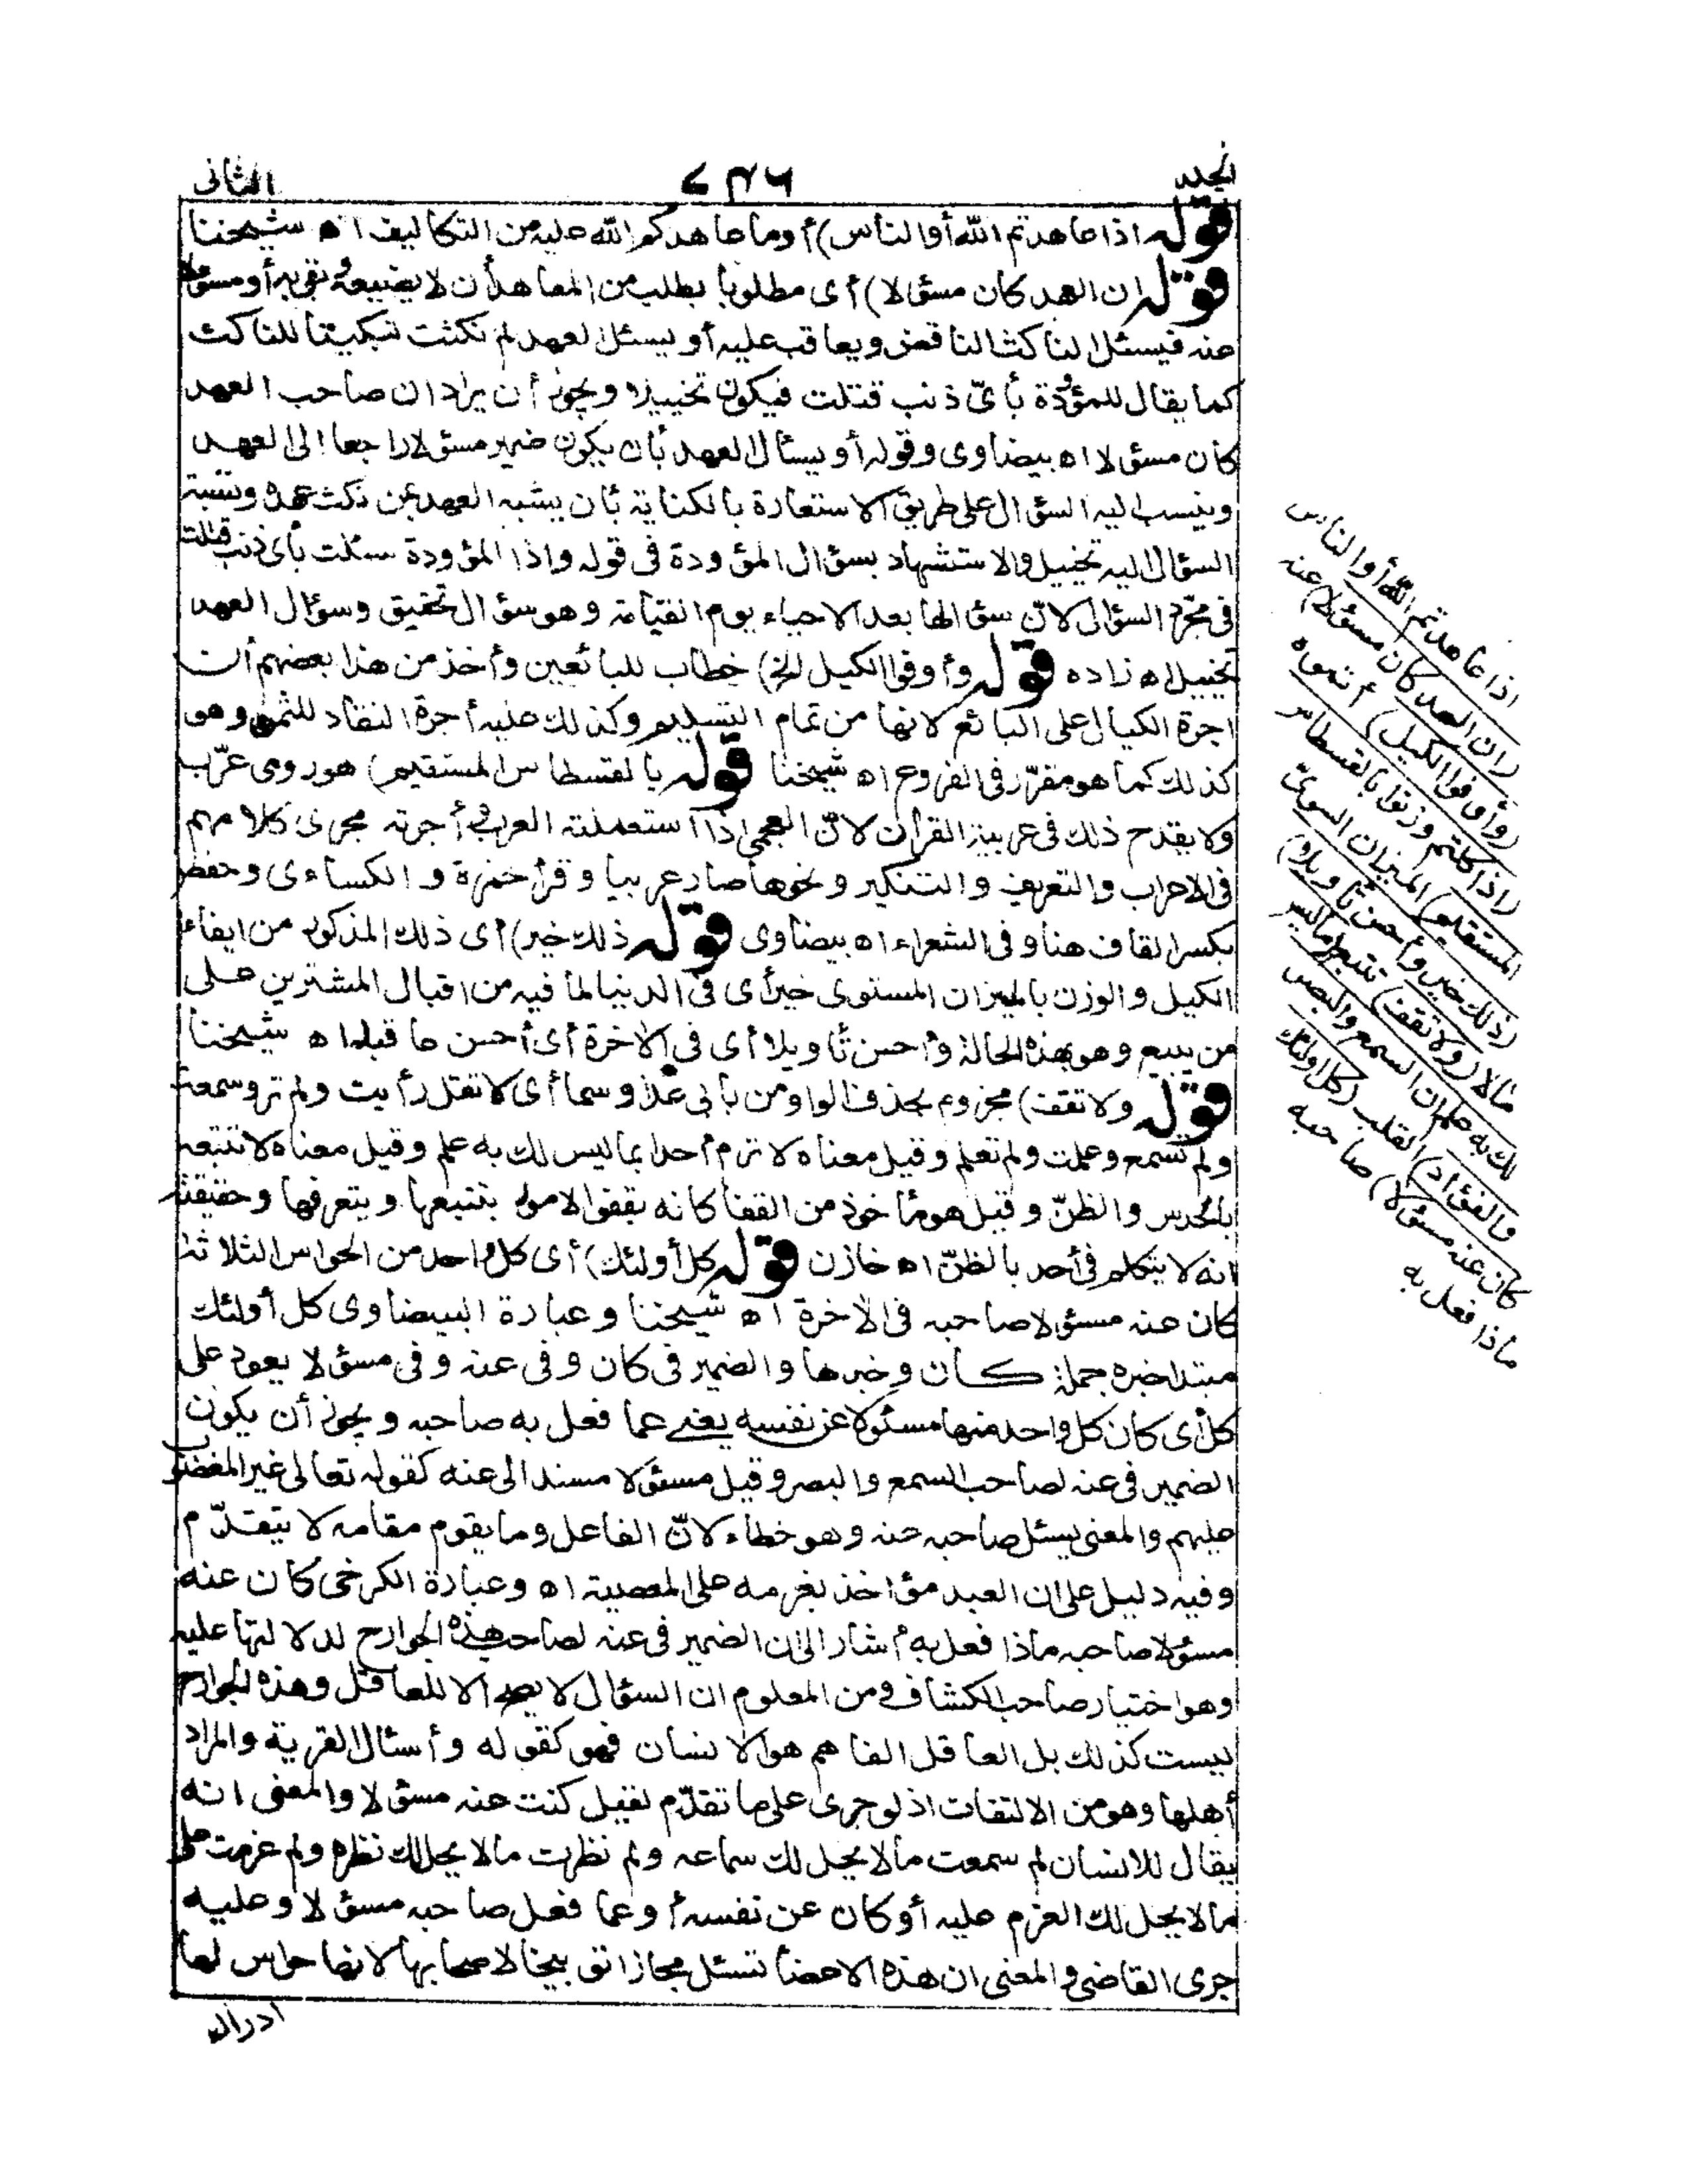 المجلد
٦٣٦
الثاني
قوله اذا عاهدتم الله أو الناس) أو ما عاهدكم الله عليه من التكاليف اه شيخنا
قوله ان العهد كان مسؤلا) أى مطلوبا يطلب من المعاهد أن لا يضيعه و يفى به أو مسؤلا
عنه فيسئل الناكث الناقض ويعاقب عليه أو يسئل العهد لم نكثت تبكيتا للناكث
كما يقال للمؤدة بأىّ ذنب قتلت فيكون تخييلا ويجوز أن يراد ان صاحب العهد
كان مسؤلا اه بيضاوى وقوله أو يسئال العهد بأن يكون ضمير مسؤلا راجعا الى العهد
وينسب اليه السؤال على طريق الاستعارة بالكناية بأن يشبه العهد بمن نكث عهده ونسبة
السؤال اليه تخييل والاستشهاد بسؤال المؤودة فى قوله واذا المؤودة سئلت بأى ذنب قتلت
فى مجرّد السؤال لانّ سؤالها بعد الاحياء يوم القيامة وهو سؤال تحقيق وسؤال العهد
تخييل اه زاده قوله وأوفوا الكيل الخ) خطاب للبائعين وأخذ من هذا بعضهم أن
اجرة الكيال على البائع لانها من تمام التسليم وكذلك عليه أجرة النقاد للثمن وهو
كذلك كما هو مقرّر فى الفروع اه شيخنا قوله بالقسطاس المستقيم) هو رومى عرّب
ولا يقدح ذلك فى عربية القرآن لانّ العجمى اذا استعملته العرب و أجرته مجرى كلامهم
فى الاعراب والتعريف والتنكير ونحوها صار عربيا وقرأ حمزة والكساءى وحفص
بكسر القاف هنا وفى الشعراء اه بيضاوى قوله ذلك خير) أى ذلك المذكور من ايفاء
الكيل والوزن بالميزان المستوى خير أى فى الدنيا لما فيه من اقبال المشترين على
من يبيع وهو بهذه الحالة وأحسن تأويلا أى فى الآخرة أى أحسن ما قبله اه شيخنا
قوله ولا تقف) مجزوم بحذف الواو من بابى عدا وسما أى لا تقل رأيت ولم تر وسمعت
ولم تسمع وعلمت ولم تعلم وقيل معناه لا ترم أحدا بما ليس لك به علم وقيل معناه لا تتبعه
بالحدس والظنّ وقيل هو مأخوذ من القفا كانه يقفو الامور يتتبعها ويتعرفها وحقيقته
انه لا يتكلم فى أحد بالظنّ اه خازن قوله كل أولئك) أى كل واحد من الحواس الثلاثة
كان عنه مسؤلا صاحبه فى الآخرة اه شيخنا وعبارة البيضاوى كل أولئك
مبتدا خبره جملة كان وخبرها والضمير فى كان وفى عنه وفى مسؤلا يعود على
كل أى كان كل واحد منها مسئولا عن نفسه يعنى عما فعل به صاحبه ويجوز أن يكون
الضمير فى عنه لصاحب السمع والبصر وقيل مسؤلا مسند الى عنه كقوله تعالى غير المغضوب
عليهم والمعنى يسئل صاحبه عنه وهو خطاء لانّ الفاعل وما يقوم مقامه لا يتقدّم
وفيه دليل على ان العبد مؤاخذ بعزمه على المعصية اه وعبارة الكرخى كان عنه
مسؤلا صاحبه ماذا فعل به أشار الى ان الضمير فى عنه لصاحب هذه الجوارح لدلالتها عليه
وهو اختيار صاحب الكشاف ومن المعلوم ان السؤال لا يصح الا للعاقل وهذه الجوارح
ليست كذلك بل العاقل الفاهم هو الانسان فهو كقوله وأسئال القرية والمراد
أهلها وهو من الالتفات اذ لو جرى على ما تقدّم لقيل كنت عنه مسؤلا والمعنى انه
يقال للانسان لم سمعت ما لا يحل لك سماعه ولم نظرت ما لا يحل لك نظره ولم عزمت على
ما لا يحل لك العزم عليه أو كان عن نفسه أو عما فعل صاحبه مسؤلا وعليه
جرى القاضى والمعنى ان هذه الاعضأ تسئل مجازا توبيخا لاصحابها لانها حواس لها
ادراك
اذا عاهدتم الله أو الناس
(ان العهد كان مسؤلا) عنه
(وأوفوا الكيل) أتموه
(اذا كلتم وزنوا بالقسطاس
المستقيم) الميزان السوىّ
(ذلك خير وأحسن تأويلا)
مآلا (ولا تقف) تتبع (ما ليس
لك به علم ان السمع والبصر
والفؤاد) القلب (كل اولئك
كان عنه مسؤلا) صاحبه
ماذا فعل به